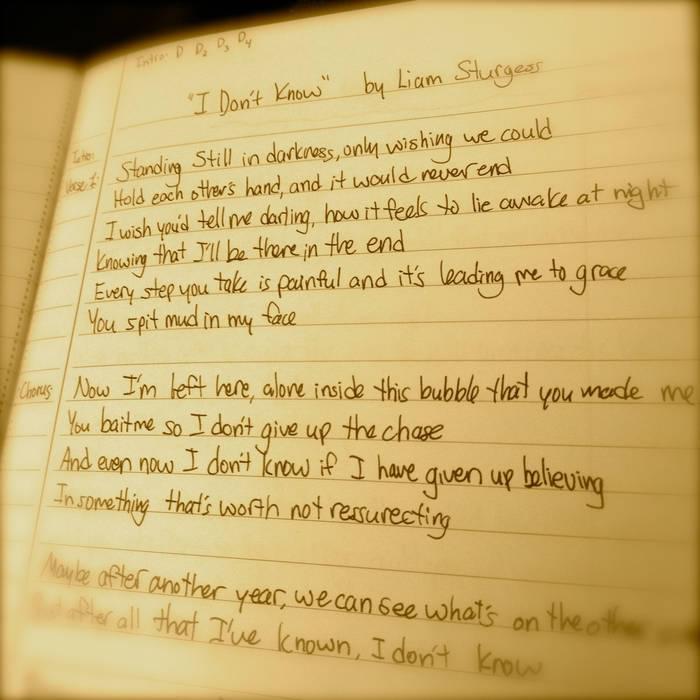 Intro: D D2 D3 D4
"I Don't Know" by Liam Sturgess
Intro:
Verse 1: Standing Still in darkness, only wishing we could
Hold each other's hand, and it would never end
I wish you'd tell me darling, how it feels to lie awake at night
Knowing that I'll be there in the end
Every step you take is painful and it's leading me to grace
You spit mud in my face
Chorus: Now I'm left here, alone inside this bubble that you made me
You bait me so I don't give up the chase
And even now I don't know if I have given up believing
In something that's worth not ressurecting
Maybe after another year, we can see what's on the other
after all that I've known, I don't know